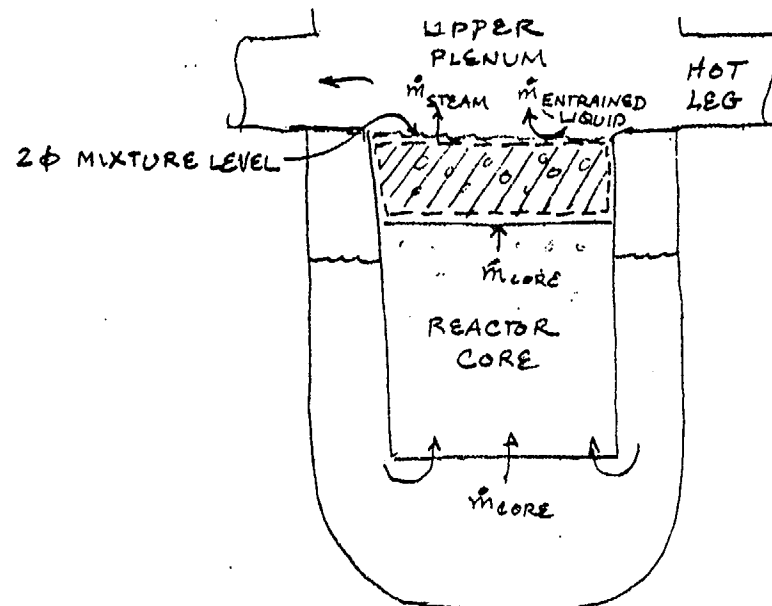 UPPER
PLENUM
HOT
LEG
ṁ STEAM
ṁ ENTRAINED
LIQUID
2φ MIXTURE LEVEL
ṁ CORE
REACTOR
CORE
ṁ CORE